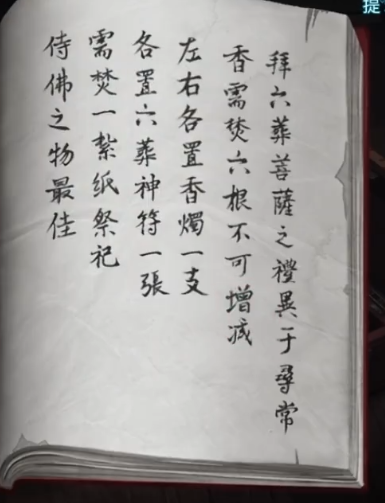 拜六葬菩薩之禮異于尋常
香需焚六根不可增减
左右各置香燭一支
各置六葬神符一張
需焚一紮纸祭祀
侍佛之物最佳
提